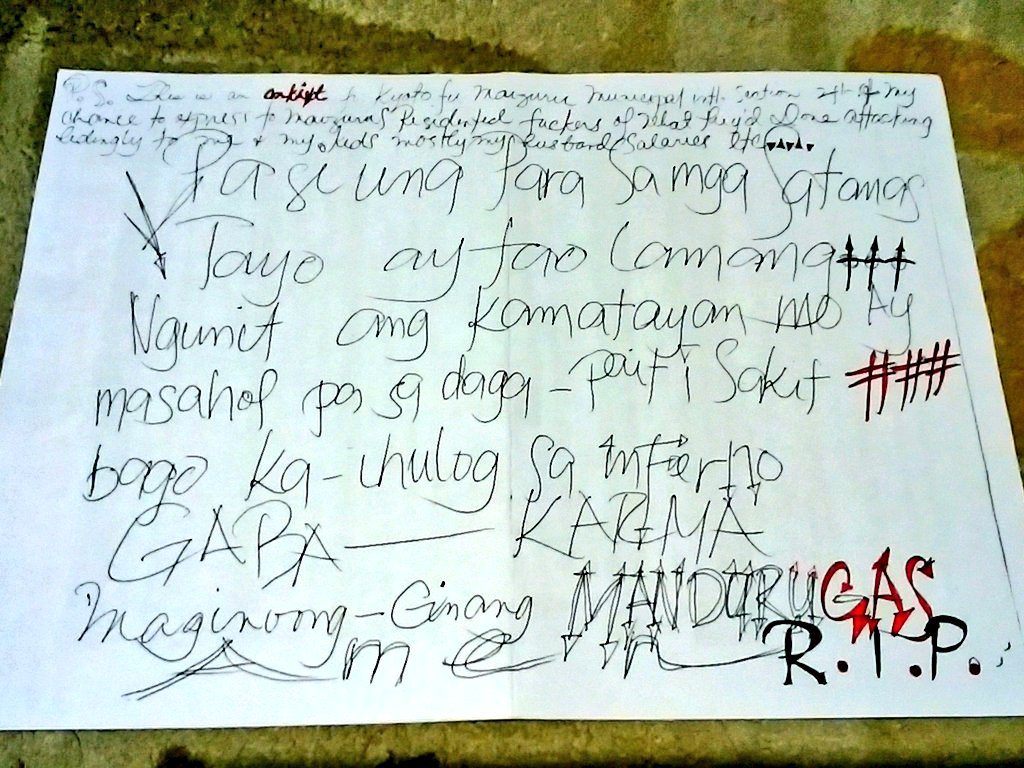 P.S. This is an to Municipal with Section of My
chance to express to Residential fuckers of What They'd Done attacking
to me & my kids mostly my husband Salaries etc
Pa si una Para Sa mga Satanas
Tayo ay tao Lamang
Ngunit ang Kamatayan mo Ay
masahol pa sa daga - pait i Sakit ###
bago ka-ihulog sa infierno
GABA — KARMA
Maginoong - Ginang MANDURUGAS
Amen R.I.P.